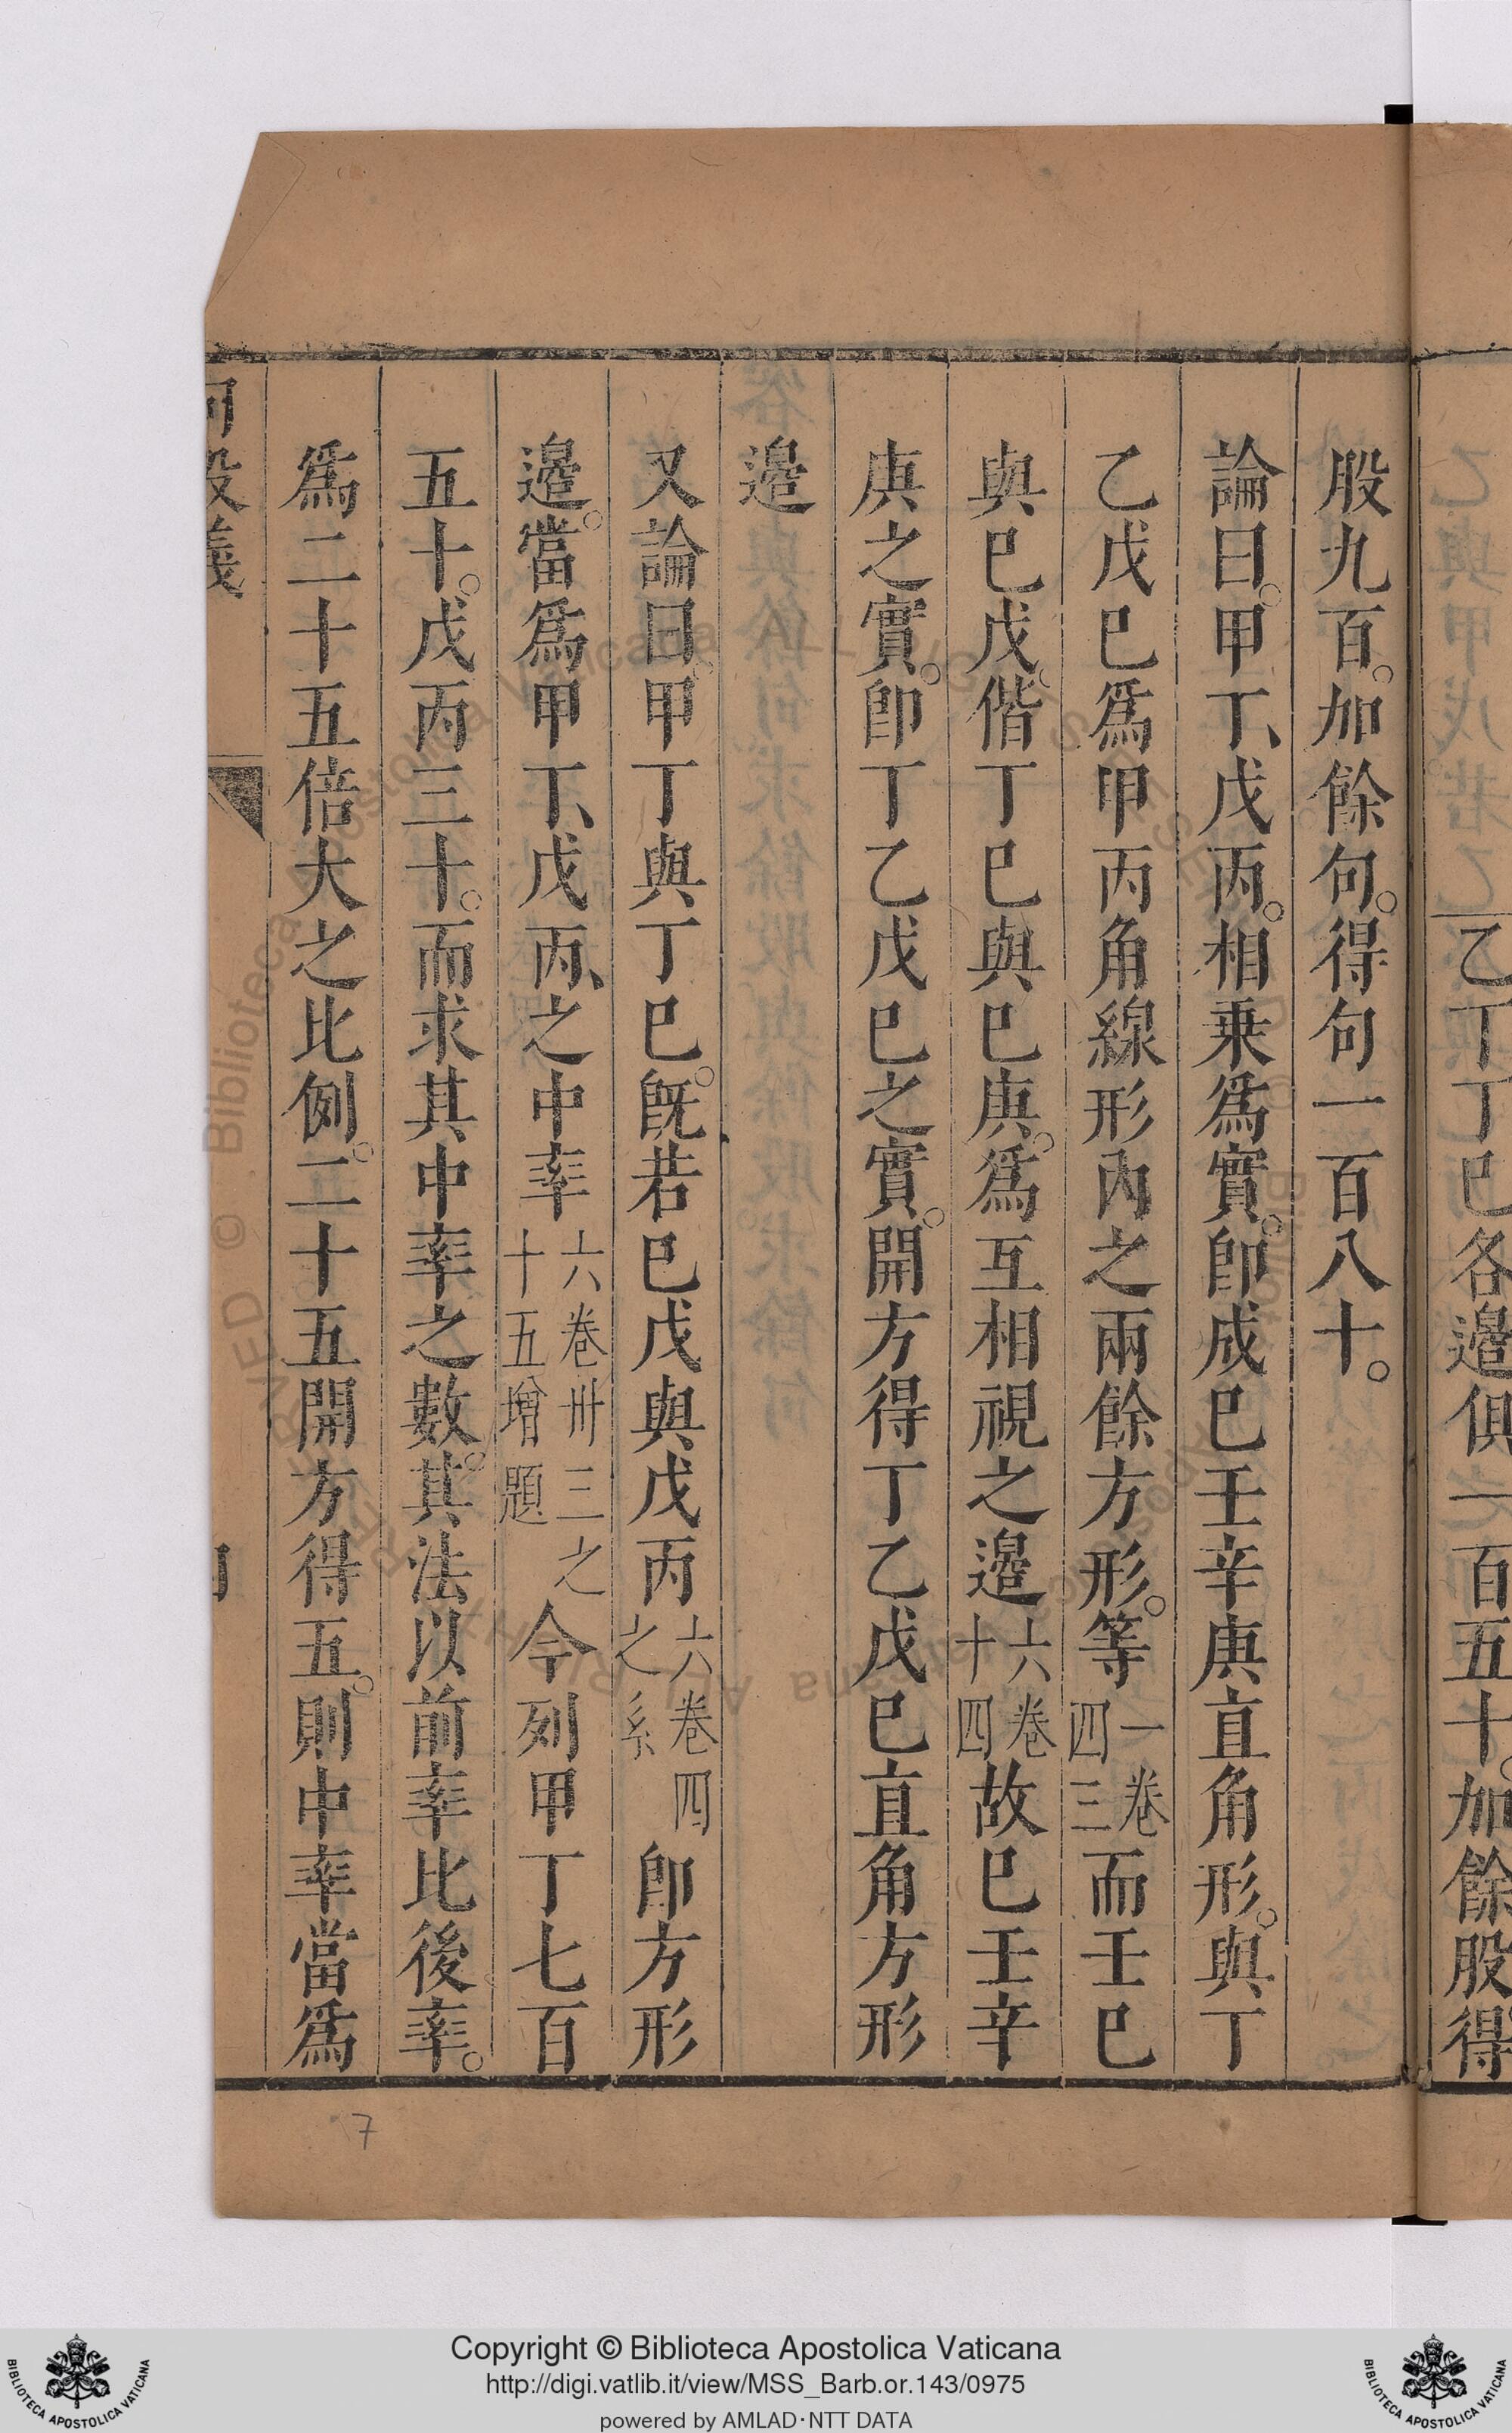 乙丁丁巳各邊俱一百五十。加餘股得
股九百。加餘句。得句一百八十。
論曰。甲丁、戊丙。相乗爲實。卽成巳壬辛庚直角形。與丁
乙戊巳爲甲丙角線形內之兩餘方形。等一卷四三而壬巳
與巳戊。偕丁巳與巳庚。爲互相視之邊六卷十四故巳壬辛
庚之實。卽丁乙戊巳之實。開方得丁乙戊巳直角方形
邊
又論曰。甲丁與丁巳。旣若巳戊與戊丙六卷四之系卽方形
邊。當爲甲丁、戊丙、之中率六卷卅三之十五增題今列甲丁七百
五十。戊丙三十。而求其中率之數。其法以前率比後率。
爲二十五倍大之比例。二十五開方得五。則中率當爲
句股義
7
Copyright © Biblioteca Apostolica Vaticana
http://digi.vatlib.it/view/MSS_Barb.or.143/0975
powered by AMLAD·NTT DATA
BIBLIOTECA APOSTOLICA VATICANA
BIBLIOTECA APOSTOLICA VATICANA